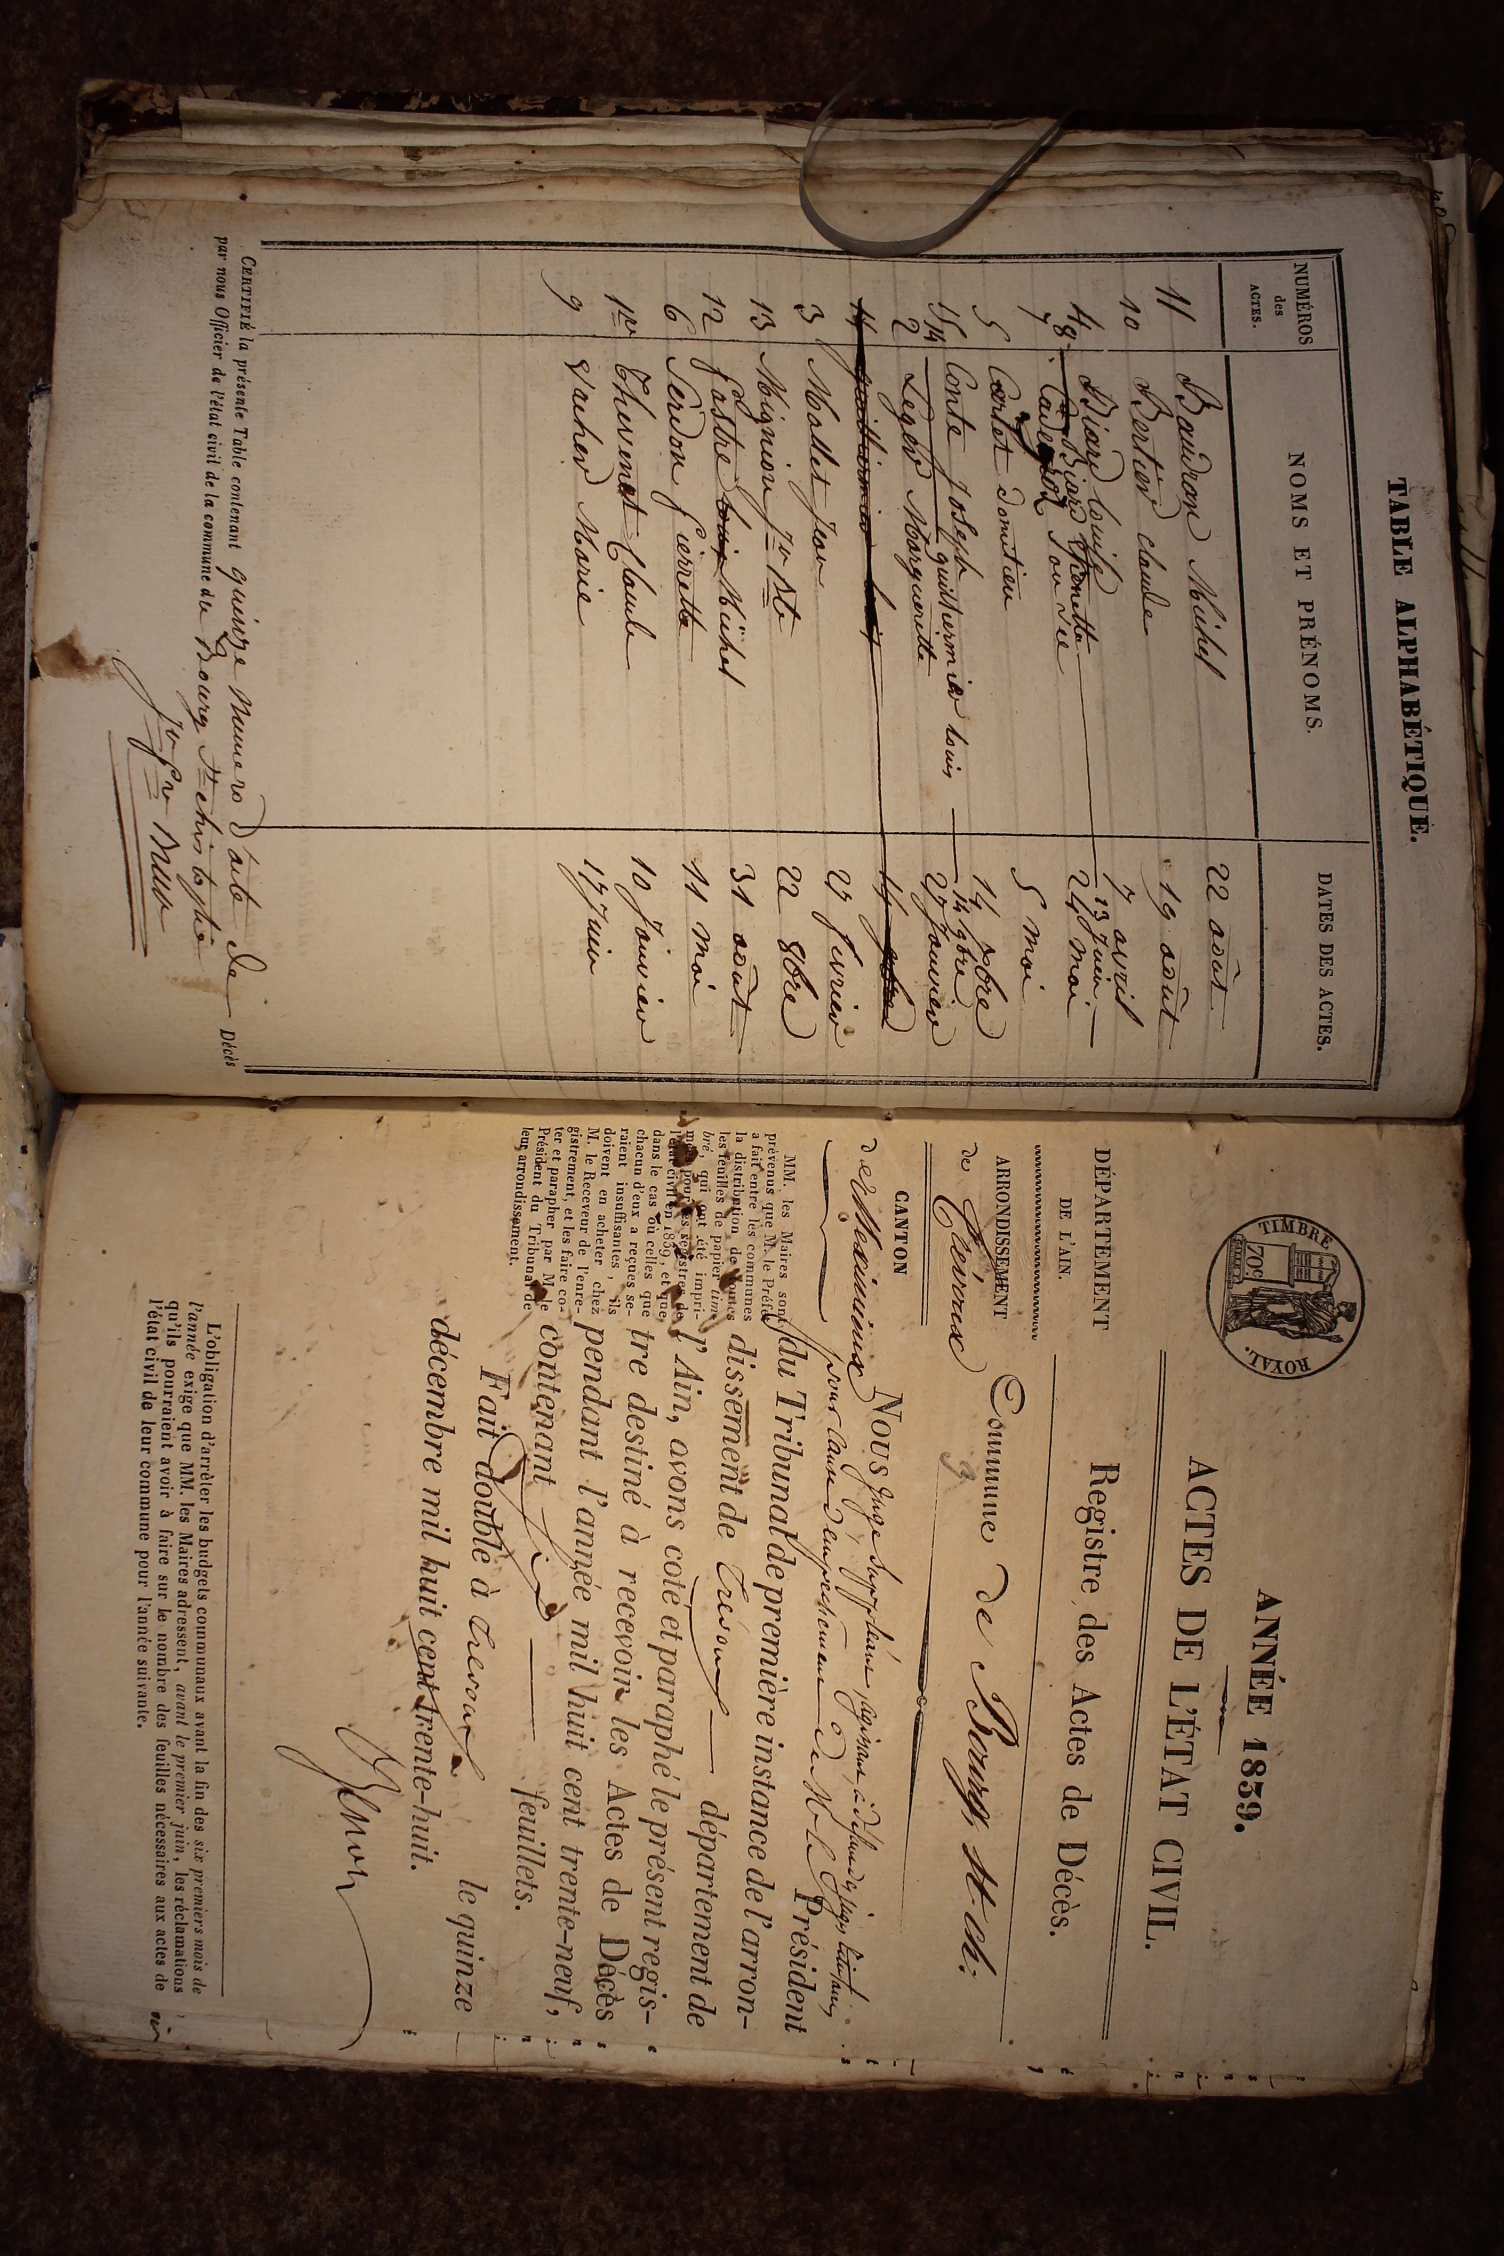 TABLE ALPHABÉTIQUE.
NUMÉROS des ACTES.
NOMS ET PRÉNOMS.
DATES DES ACTES.
11 Baudron Michel 22 août
10 Bertier claude 19 août
4 Biard louise 7 avril
8 Biard 13 Juin
7 24 mai
5 5 mai
15 Conte Joseph 14 xbre
14 guillermier louis 14 9bre
2 Leger Marguerite 27 Janvier
3 Mallet Jean 27 fevrier
13 Mignion Jn Bte 22 8bre
12 Michel 31 août
6 Perdon Pierrette 11 mai
1er Thevenet Claude 10 Janvier
9 Vacher Marie 17 Juin
CERTIFIÉ la présente Table contenant quinze numero d'acte de Décès
par nous Officier de l'état civil de la commune du Bourg St christophe
TIMBRE ROYAL.
70c
ANNÉE 1839.
ACTES DE L'ÉTAT CIVIL.
DÉPARTEMENT
DE L'AIN.
Registre des Actes de Décès.
ARRONDISSEMENT
de Trévoux
Commune de Bourg St. Ch:
CANTON
de Meximieux
NOUS Juge Suppléant, agissant à défaut de juges titulaires,
pour cause d'empêchement de Mr le Président
du Tribunal de première instance de l'arron-
dissement de Trévoux département de
l'Ain, avons coté et paraphé le présent regis-
tre destiné à recevoir les Actes de Décès
pendant l'année mil huit cent trente-neuf,
contenant six feuillets.
Fait double à Trevoux le quinze
décembre mil huit cent trente-huit.
MM. les Maires sont
prévenus que M. le Préfet
a fait entre les communes
la distribution de toutes
les feuilles de papier tim-
bré, qui ont été impri-
mées pour les registres de
l'état civil en 1839, et que,
dans le cas où celles que
chacun d'eux a reçues se-
raient insuffisantes, ils
doivent en acheter chez
M. le Receveur de l'enre-
gistrement, et les faire co-
ter et parapher par M. le
Président du Tribunal de
leur arrondissement.
L'obligation d'arrêter les budgets communaux avant la fin des six premiers mois de
l'année exige que MM. les Maires adressent, avant le premier juin, les réclamations
qu'ils pourraient avoir à faire sur le nombre des feuilles nécessaires aux actes de
l'état civil de leur commune pour l'année suivante.